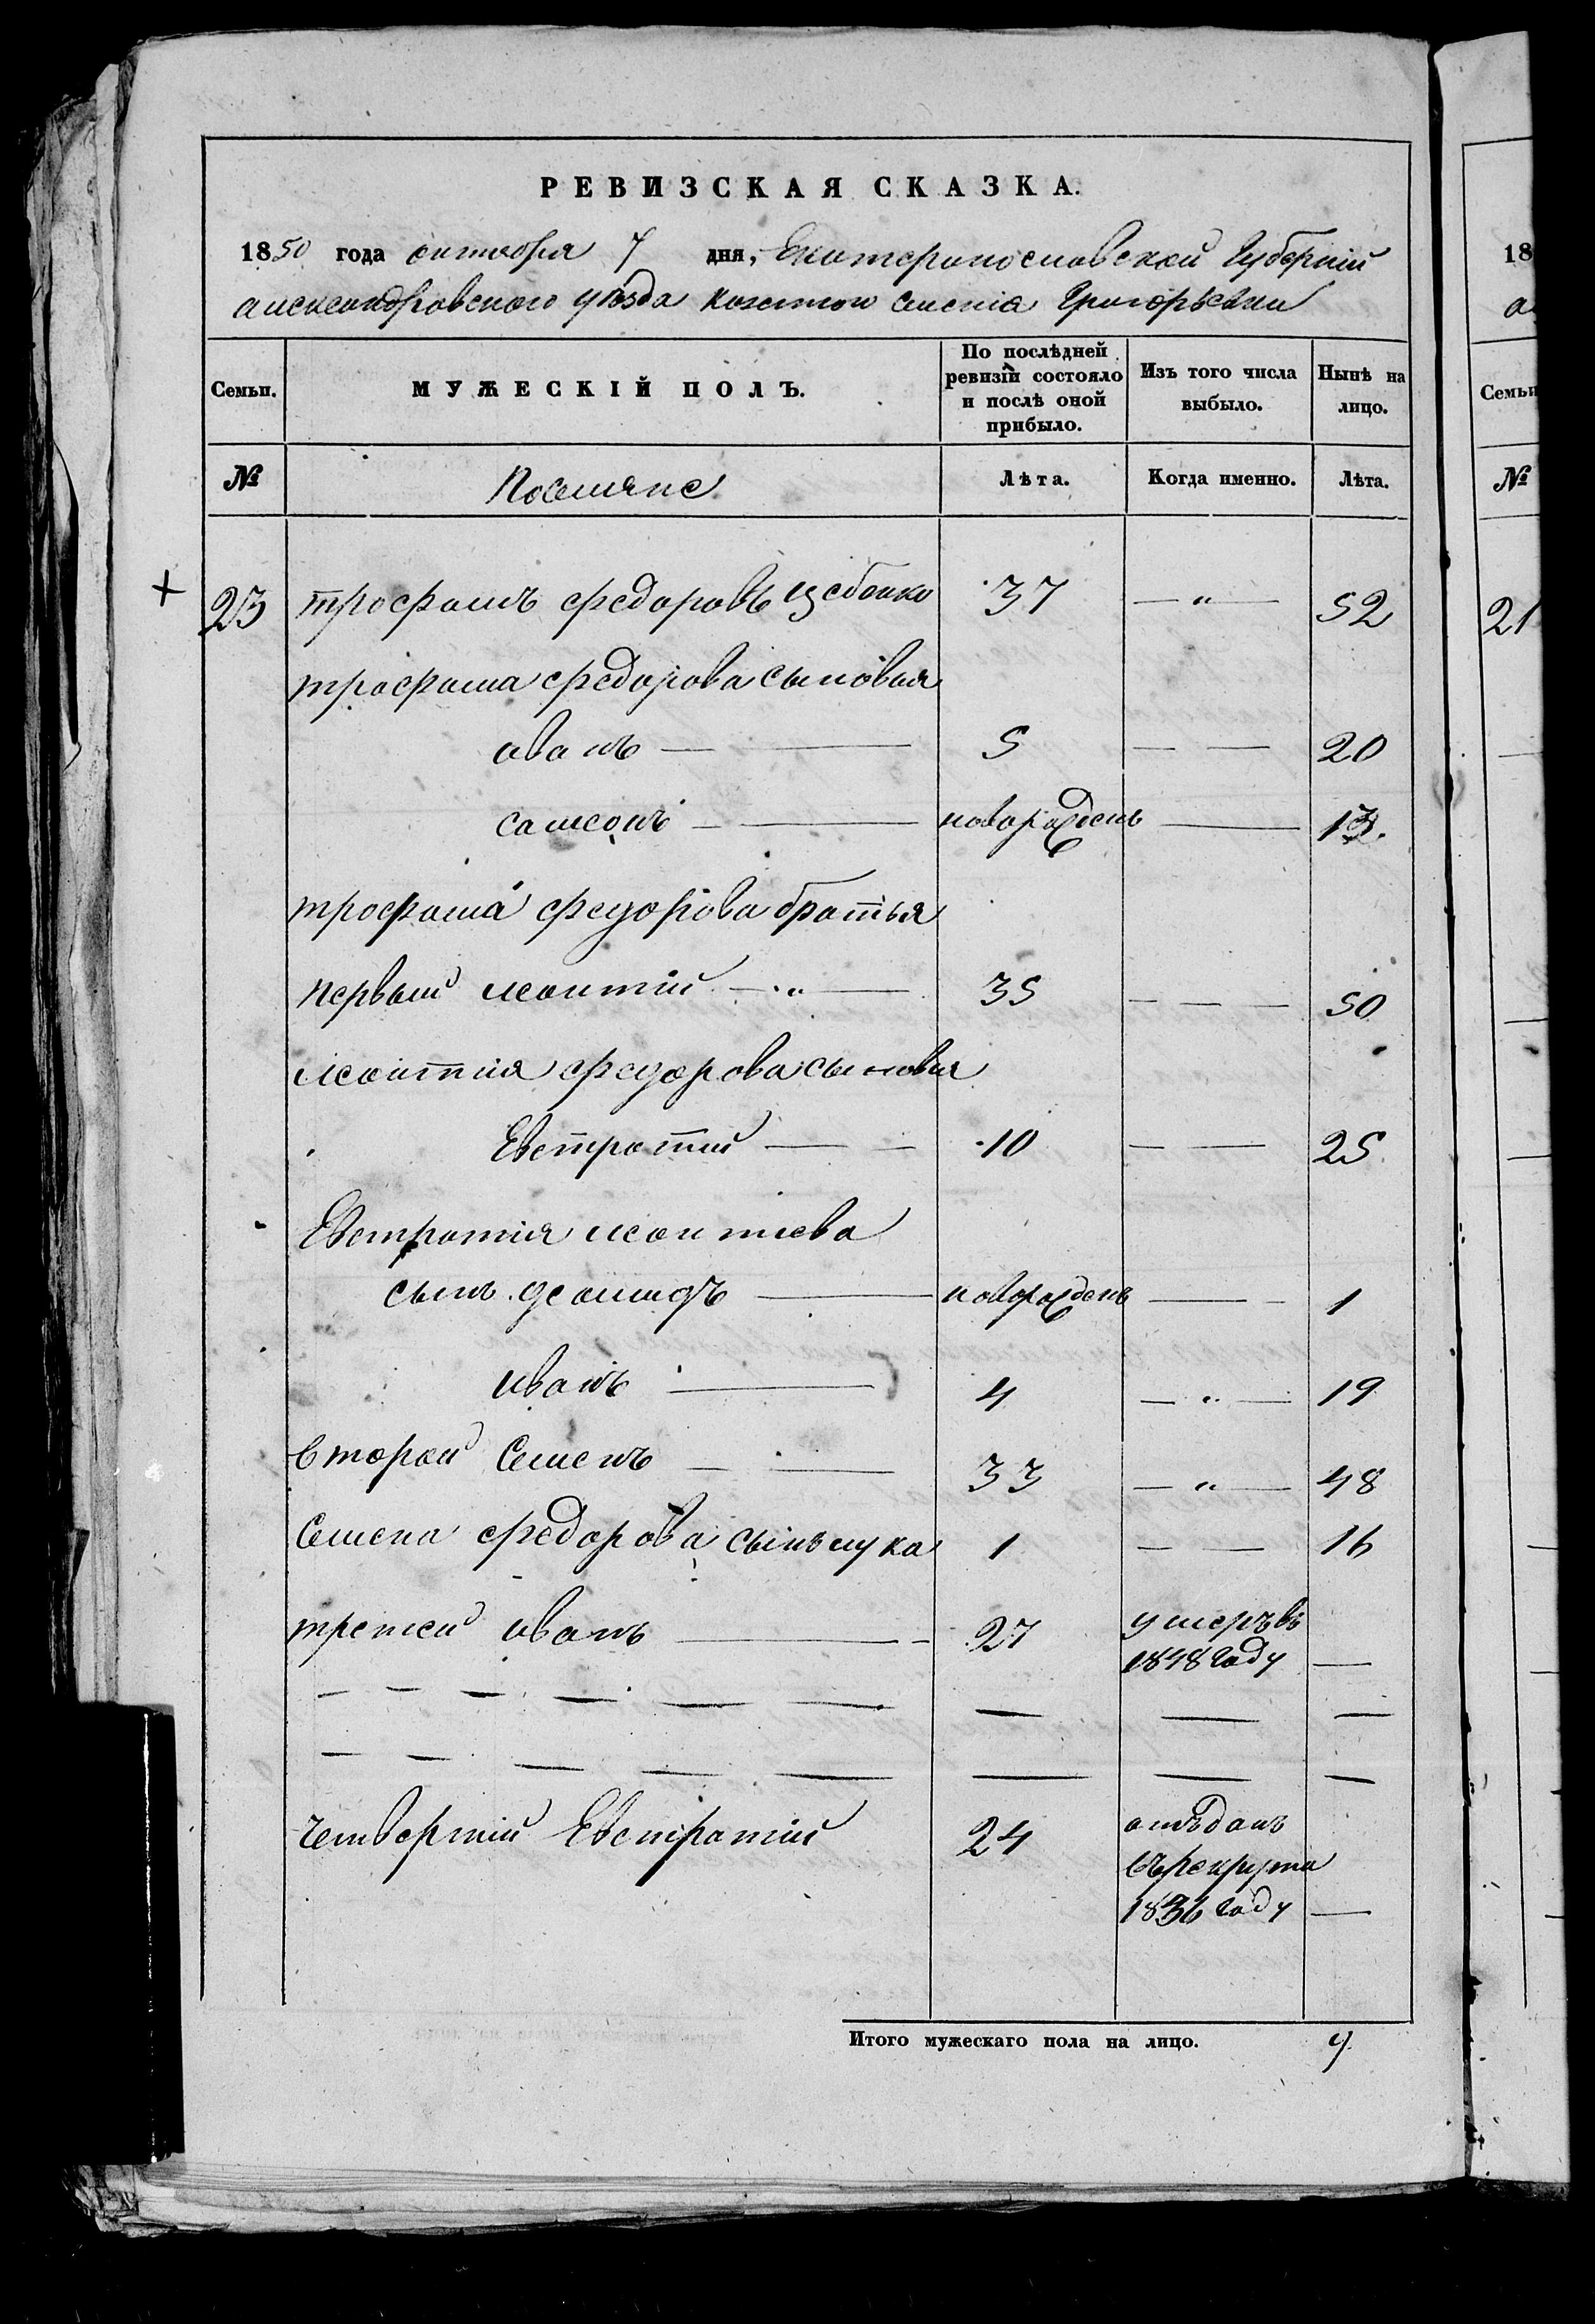 РЕВИЗСКАЯ СКАЗКА.
1850 года октября 7 дня, Екатеринославской Губернии
александровского уѣзда казенного селенія Григорьевки
Семьи.
МУЖЕСКІЙ ПОЛЪ.
По послѣдней ревизіи состояло и послѣ оной прибыло.
Изъ того числа выбыло.
Нынѣ на лицо.
№
Поселяне
Лѣта.
Когда именно.
Лѣта.
23 трофимъ федоровъ 37 — " — 52
трофима федорова сыновья
иванъ — — 5 — — 20
самсонъ — — новорожденъ — 13.
трофима федорова братья
первый леонтій — " — 35 — — — 50
леонтия федорова сыновья
Евстратий — — 10 — — 25
Евстратия леонтиева
сынъ демидъ — новорожденъ — — 1
иванъ — 4 — " — 19
второй Семенъ — — 33 — " — 48
Семена федорова сынъ лука 1 — — 16
третей иванъ — — 27 умеръ въ
1848 году —
— — — — — — — — —
— — — — — — — — —
четвертий Евстратий 24 отъданъ
въ рекруты
1836 году —
Итого мужескаго пола на лицо. 9
18
Семьи
№
21